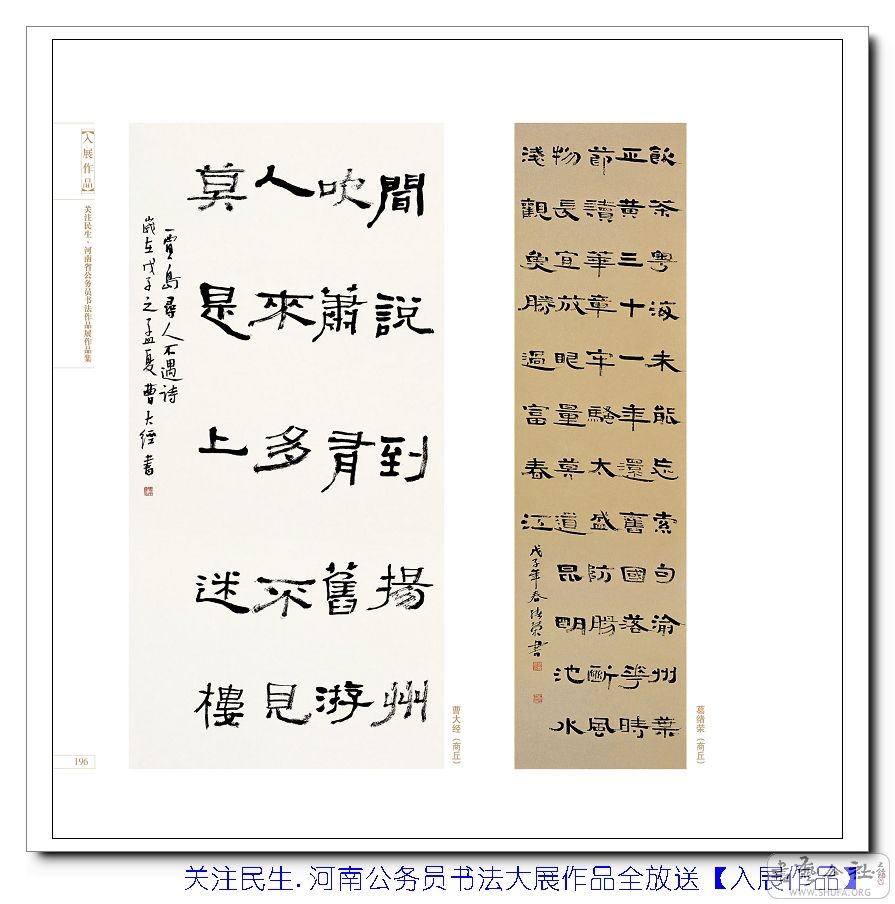 【入展作品】
关注民生·河南省公务员书法作品展作品集
196
間說到揚州
吹蕭有舊游
人來多不見
莫是上迷樓
賈島尋人不遇诗
歲在戊子之孟夏曹大經書
曹大经（商丘）
飲茶粵海未能忘索句渝州葉
正黃三十一年還舊國落花時
節讀華章牢騷太盛防腸斷風
物長宜放眼量莫道昆明池水
淺觀魚勝過富春江
戊子年春緒榮書
葛绪荣（商丘）
关注民生.河南公务员书法大展作品全放送【入展作品】
書藝公社
WWW.SHUFA.ORG